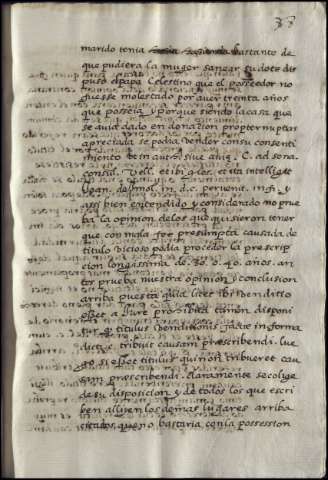 38
marido tenia hacienda bastante de
que pudiera la muger sanear su dote dis
puso el papa Celestino que el posseedor no
fuesse molestado por aver treinta años
que posseia y porque siendo la casa que
se avia dado en donacion propter nuptias
apreciada se podia vender con su consenti
miento
consil. Vell. et in
Joan. de Imol. in. d. c. pervenit. in fi. y
assi bien entendido y considerado no prue
ba la opinion de los que quisieron tener
que con mala fee presumpta causada de
titulo vicioso podia proceder la prescrip
cion longissima de .30. o. 40. años. an
tes prueba nuestra opinion y conclusion
arriba puesta quia licet ibi venditio
esset a jure prohibita tamen disponi
tur titulus venditionis factae in forma
dicta tribuit causam praescribendi. lue
go si esset titulus qui non tribueret cau
sam praescribendi. claramente se colige
de su disposicion y de todos los que escri
ben alli y en los demas lugares arriba
citados, que no bastaria con la possession